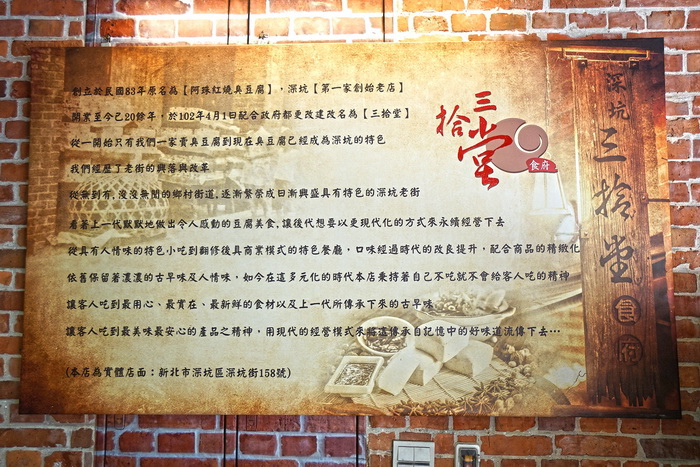 創立於民國83年原名為【阿珠紅燒臭豆腐】，深坑【第一家創始老店】
開業至今已20餘年，於102年4月1日配合政府都更改建改名為【三拾堂】
從一開始只有我們一家賣臭豆腐到現在臭豆腐已經成為深坑的特色
我們經歷了老街的興落與改革
從無到有,沒沒無聞的鄉村街道,逐漸繁榮成日漸興盛具有特色的深坑老街
看著上一代默默地做出令人感動的豆腐美食,讓後代想要以更現代化的方式來永續經營下去
從具有人情味的特色小吃到翻修後具商業模式的特色餐廳，口味經過時代的改良提升，配合商品的精緻化
依舊保留著濃濃的古早味及人情味，如今在這多元化的時代本店秉持著自己不吃就不會給客人吃的精神
讓客人吃到最用心、最實在、最新鮮的食材以及上一代所傳承下來的古早味
讓客人吃到最美味最安心的產品之精神，用現代的經營模式來將這傳承自記憶中的好味道流傳下去…
(本店為實體店面：新北市深坑區深坑街158號)
三拾堂
食府
深坑
三拾堂
食府